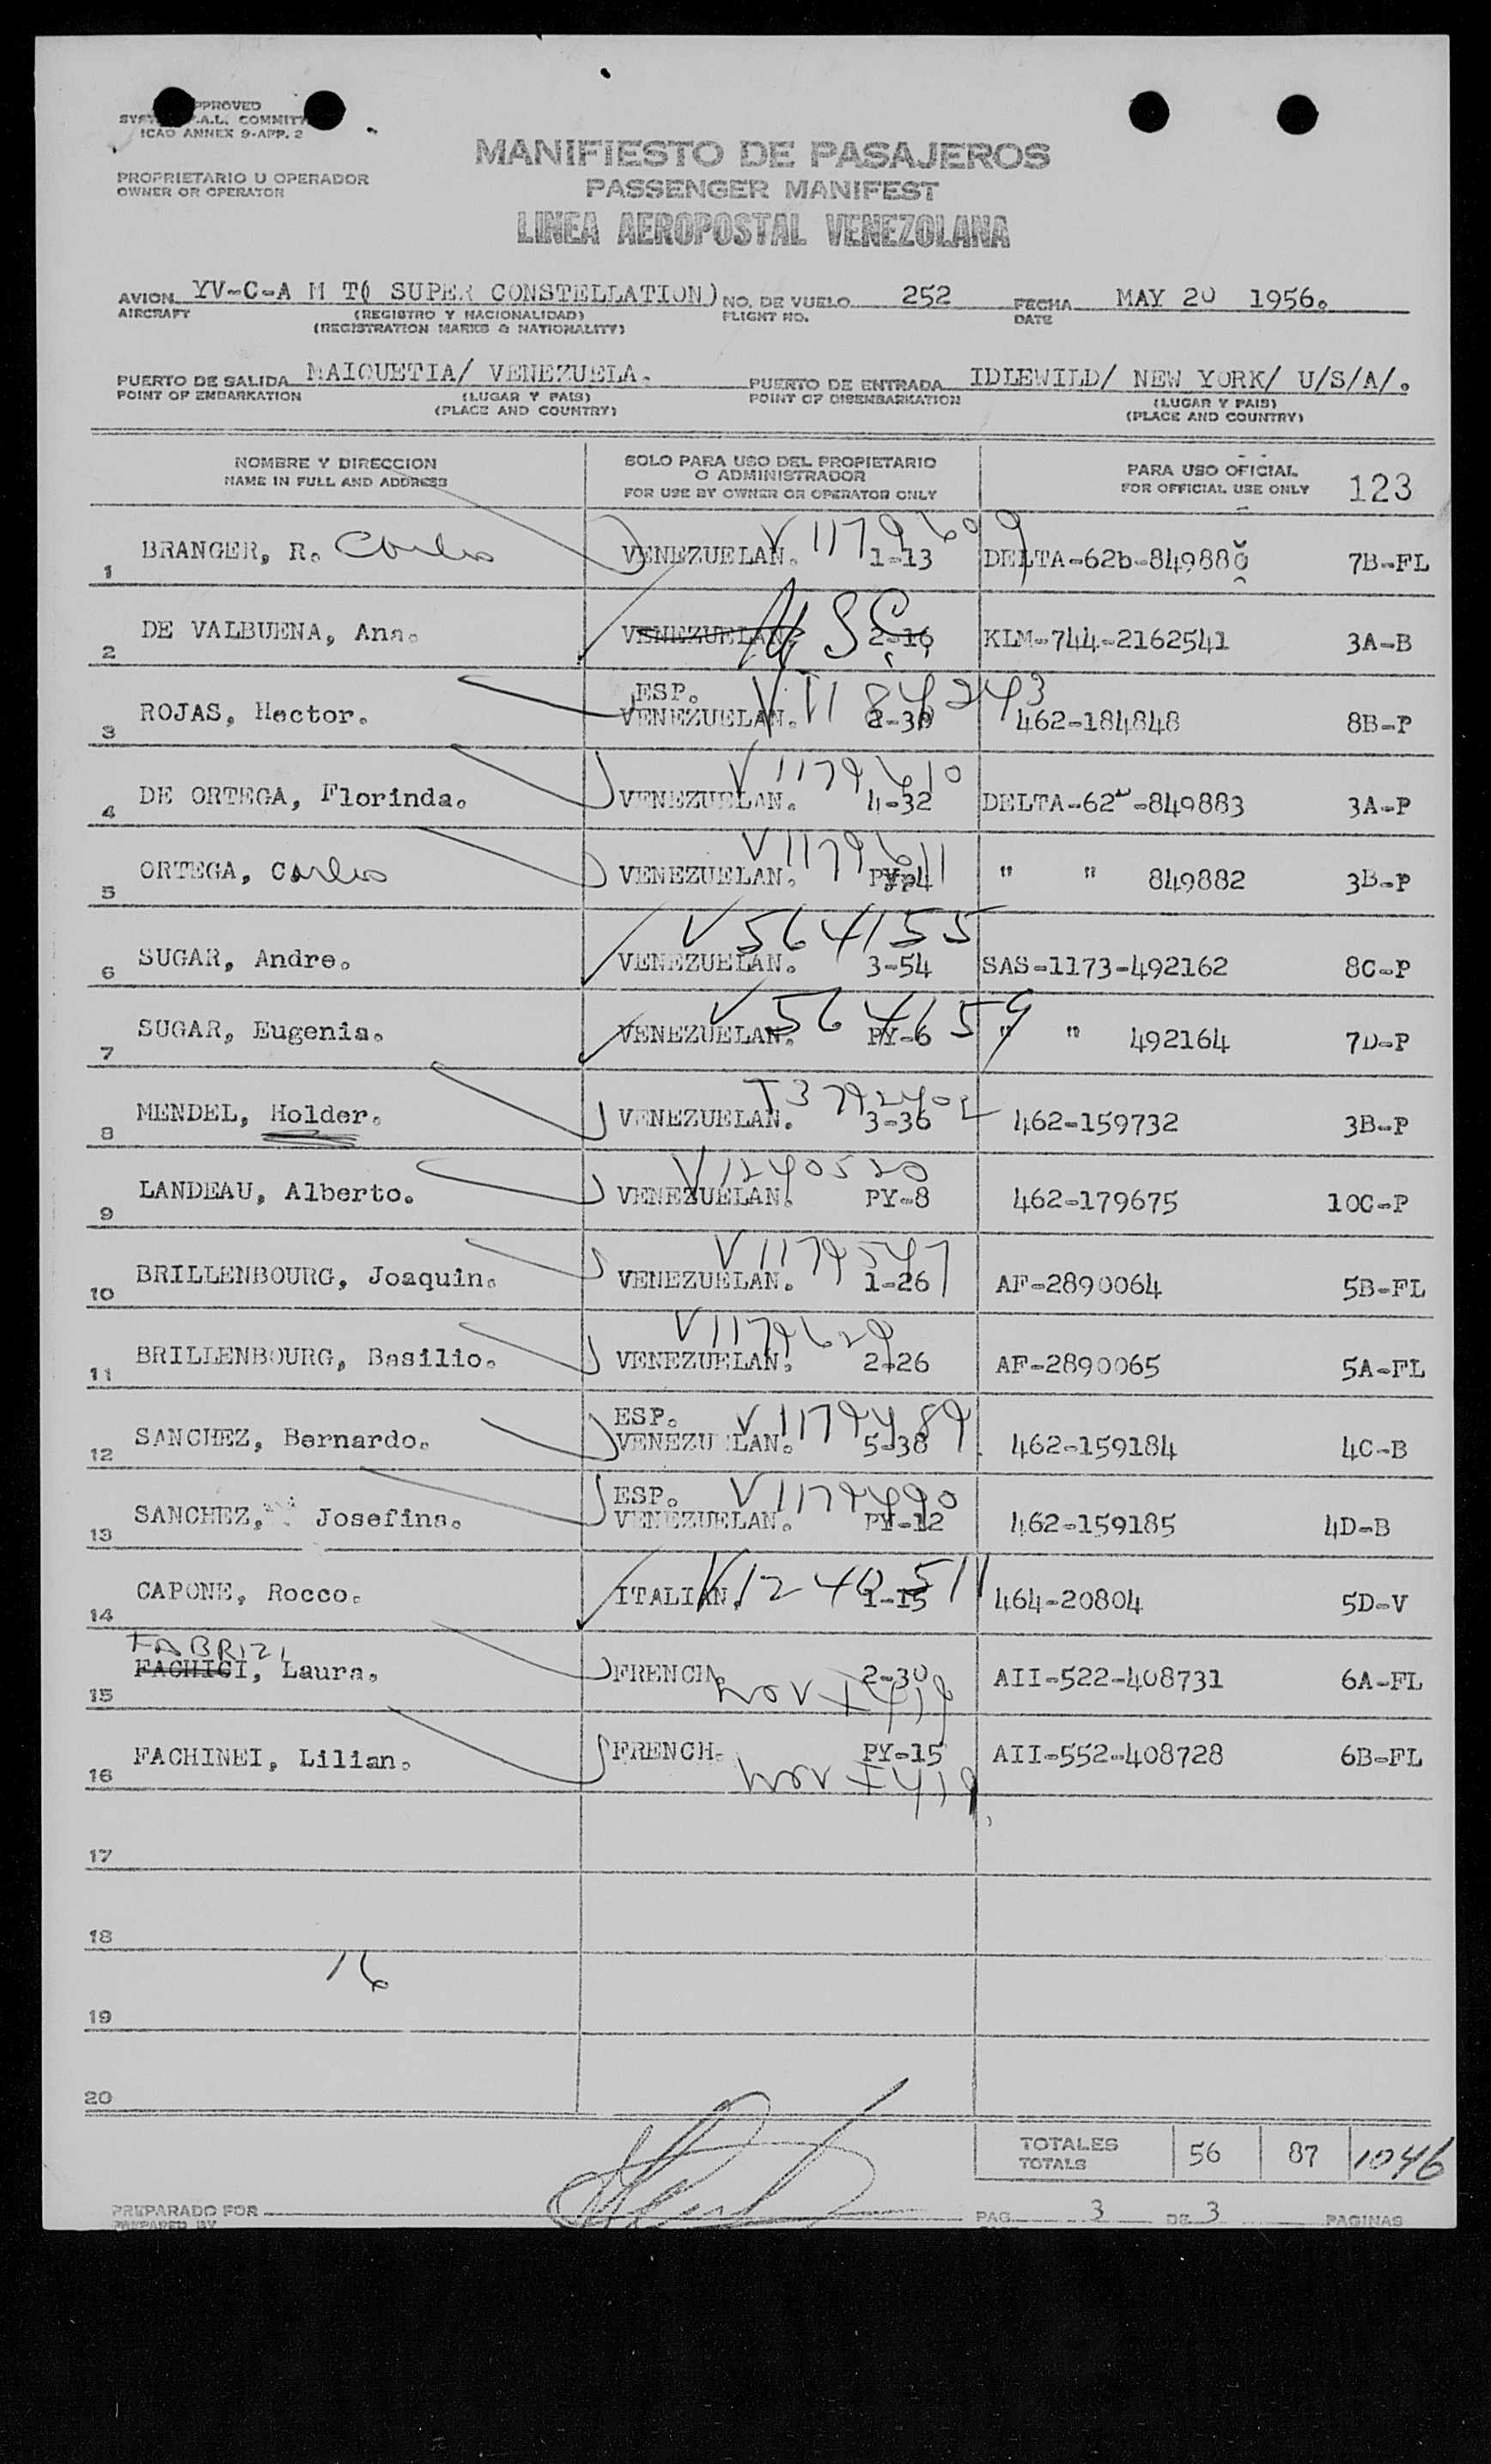 APPROVED
COMMITT
ICAO ANNEX 9-APP. 2
MANIFIESTO DE PASAJEROS
PROPRIETARIO U OPERADOR
OWNER OR OPERATOR
PASSENGER MANIFEST
LINEA AEROPOSTAL VENEZOLANA
AVION YV-C-A M T( SUPER CONSTELLATION) NO. DE VUELO 252 FECHA MAY 20 1956.
AIRCRAFT (REGISTRO Y NACIONALIDAD) FLIGHT NO. DATE
(REGISTRATION MARKS & NATIONALITY)
PUERTO DE SALIDA MAIQUETIA/ VENEZUELA. PUERTO DE ENTRADA IDLEWILD/ NEW YORK/ U/S/A/.
POINT OF EMBARKATION (LUGAR Y PAIS) POINT OF DISEMBARKATION (LUGAR Y PAIS)
(PLACE AND COUNTRY) (PLACE AND COUNTRY)
NOMBRE Y DIRECCION SOLO PARA USO DEL PROPIETARIO O ADMINISTRADOR PARA USO OFICIAL
NAME IN FULL AND ADDRESS FOR USE BY OWNER OR OPERATOR ONLY FOR OFFICIAL USE ONLY 123
V 1179609
1 BRANGER, R. Carlos VENEZUELAN. 1-13 DELTA-62b-849880 7B-FL
2 DE VALBUENA, Ana. VENEZUELAN. USC 2-16 KLM-744-2162541 3A-B
ESP.
3 ROJAS, Hector. VENEZUELAN. 2-30 462-184848 8B-P
V 1179610
4 DE ORTEGA, Florinda. VENEZUELAN. 4-32 DELTA-62 -849883 3A-P
V 1179611
5 ORTEGA, Carlos VENEZUELAN. " " 849882 3B-P
V 564155
6 SUGAR, Andre. VENEZUELAN. 3-54 SAS-1173-492162 8C-P
7 SUGAR, Eugenia. VENEZUELAN. PY-6 " " 492164 7D-P
8 MENDEL, Holder. VENEZUELAN. 3-36 462-159732 3B-P
V 1240520
9 LANDEAU, Alberto. VENEZUELAN. PY-8 462-179675 10C-P
V 1179547
10 BRILLENBOURG, Joaquin. VENEZUELAN. 1-26 AF-2890064 5B-FL
V 1179629
11 BRILLENBOURG, Basilio. VENEZUELAN. 2-26 AF-2890065 5A-FL
ESP. V 1179489
12 SANCHEZ, Bernardo. VENEZUELAN. 5-38 462-159184 4C-B
ESP. V 1179490
13 SANCHEZ, Josefina. VENEZUELAN. PY-12 462-159185 4D-B
V 1240511
14 CAPONE, Rocco. ITALIAN. 1-15 464-20804 5D-V
FABRIZI
15 FACHICI, Laura. FRENCH. 2-30 AII-522-408731 6A-FL
16 FACHINEI, Lilian. FRENCH. PY-15 AII-552-408728 6B-FL
17
18
16
19
20
TOTALES 56 87 1046
TOTALS
PREPARADO POR PAG. 3 DE 3 PAGINAS
PREPARED BY